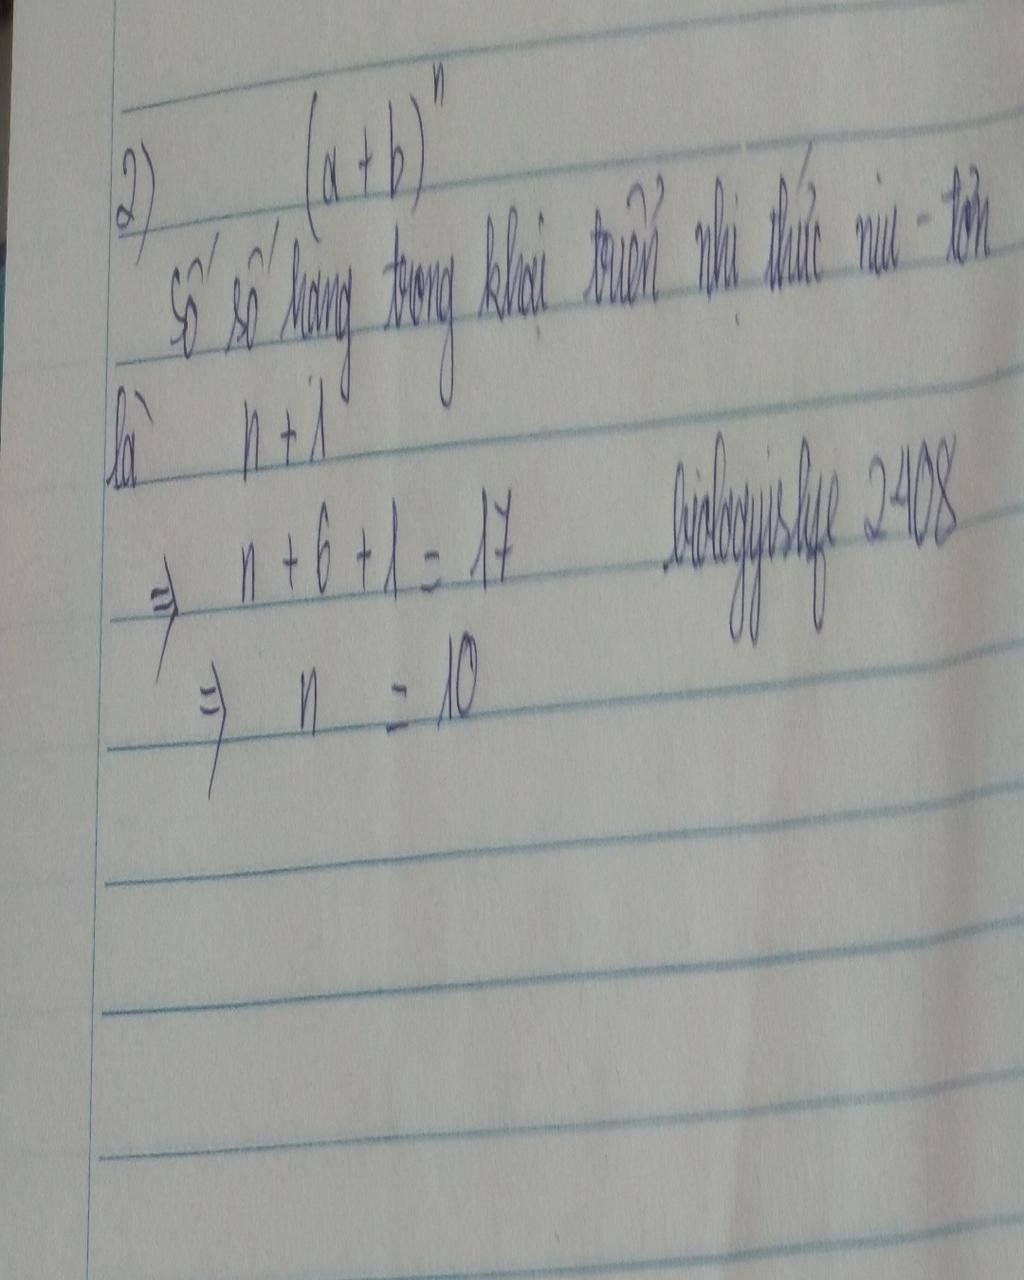 2) (a + b)^n
Số số hạng trong khai triển nhị thức niu - tơn
là n + 1
⇒ n + 6 + 1 = 17 biologyislife 2408
⇒ n = 10